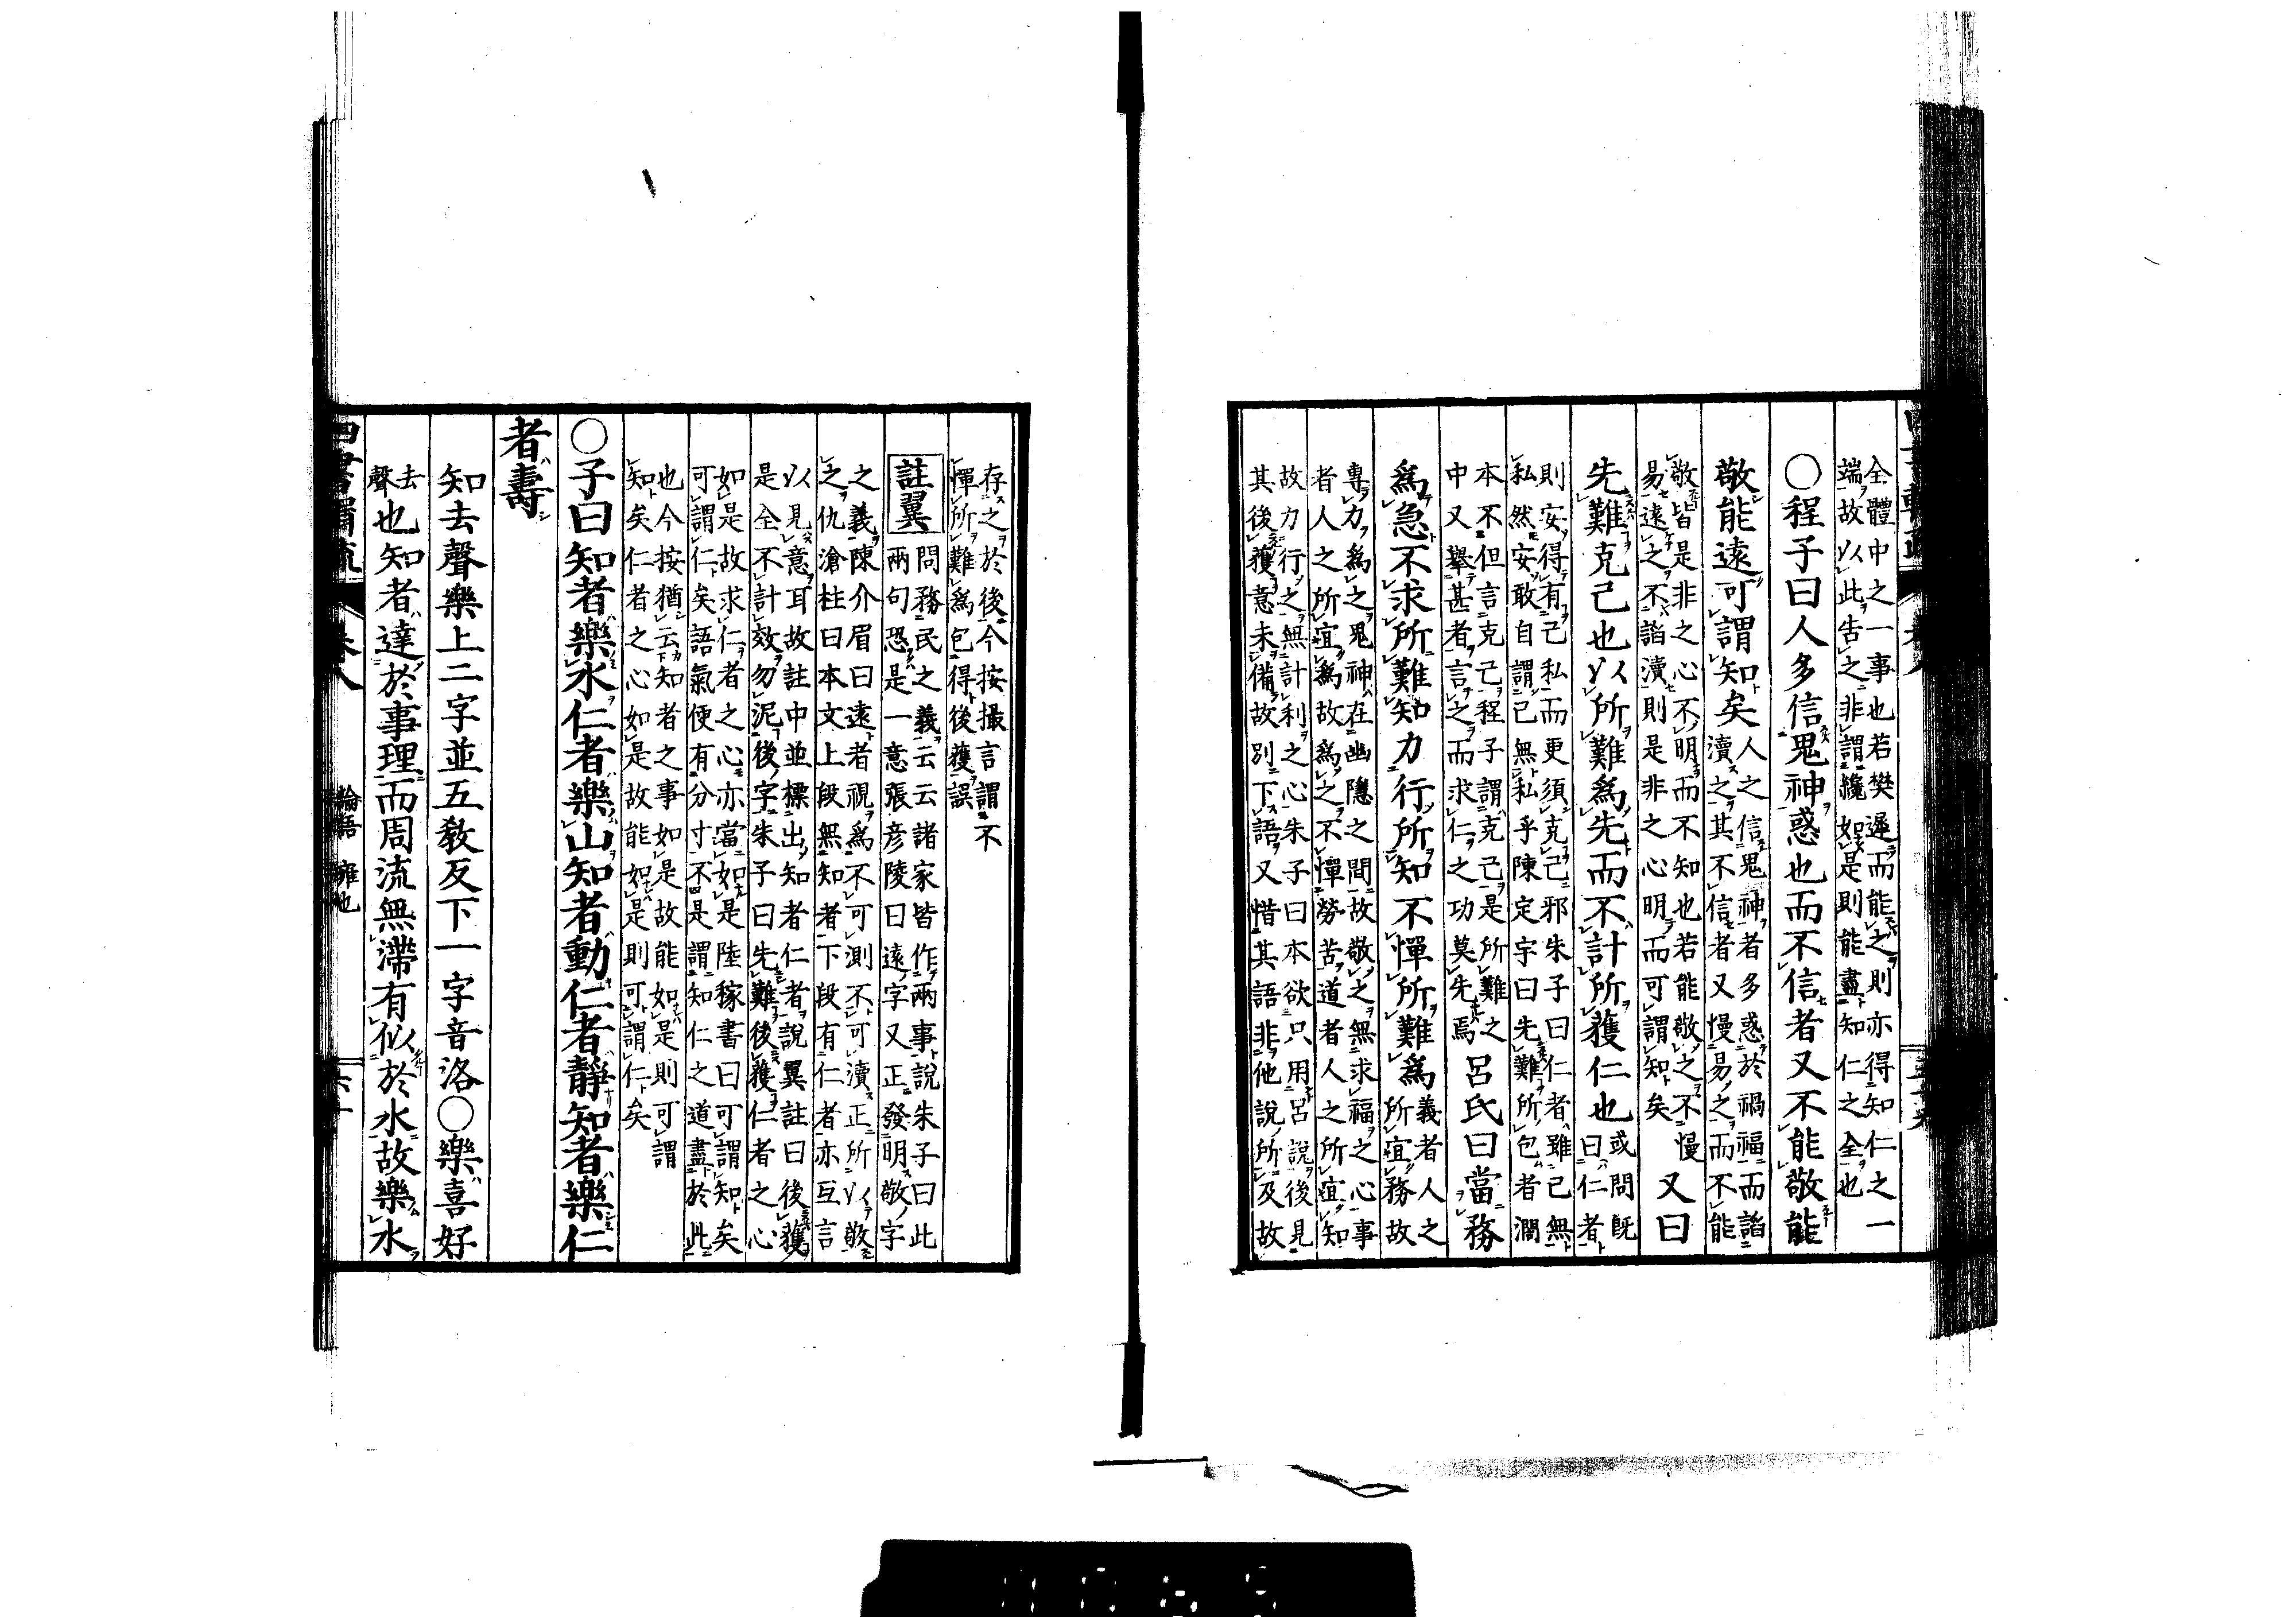 全體中之一事也若樊遲而能之則亦得知仁之一
端故以此告之非謂纔如是則能盡知仁之全也
○程子曰人多信鬼神惑也而不信者又不能敬能
敬能遠可謂知矣人之信鬼神者多惑於禍福而諂
瀆之其不信者又慢易之而不能
敬皆是非之心不明而不知也若能敬之不慢
易遠之不諂瀆則是非之心明而可謂知矣又曰
先難克己也以所難為先而不計所獲仁也或問既
曰仁者
則安得有己私而更須克己邪朱子曰仁者雖已無
私然安敢自謂已無私乎陳定宇曰先難所包者濶
本不但言克己程子謂克己是所難之
中又舉甚者言之而求仁之功莫先焉呂氏曰當務
為急不求所難知力行所知不憚所難為義者人之
所宜務故
專力為之鬼神在幽隱之間故敬之無求福之心事
者人之所宜為故為之不憚勞苦道者人之所宜知
故力行之無計利之心朱子曰本欲只用呂說後見
其後獲意未備故別下語又惜其語非他說所及故
存之於後今按撮言謂不
憚所難為包得後獲誤
註翼問務民之義云云諸家皆作兩事說朱子曰此
兩句恐是一意張彥陵曰遠字又正發明敬字
之義陳介眉曰遠者視為不可測不可瀆正所以敬
之仇滄柱曰本文上段無知者下段有仁者亦互言
以見意耳故註中並標出知者仁者說翼註曰後獲
是全不計效勿泥後字朱子曰先難後獲仁者之心
如是故求仁者之心亦當如是陸稼書曰可謂知矣
可謂仁矣語氣便有分寸不是謂知仁之道盡於此
也今按猶云知者之事如是故能如是則可謂
知矣仁者之心如是故能如是則可謂仁矣
○子曰知者樂水仁者樂山知者動仁者靜知者樂仁
者壽
知去聲樂上二字並五敎反下一字音洛○樂喜好
去聲也知者達於事理而周流無滯有似於水故樂水
論語 雍也